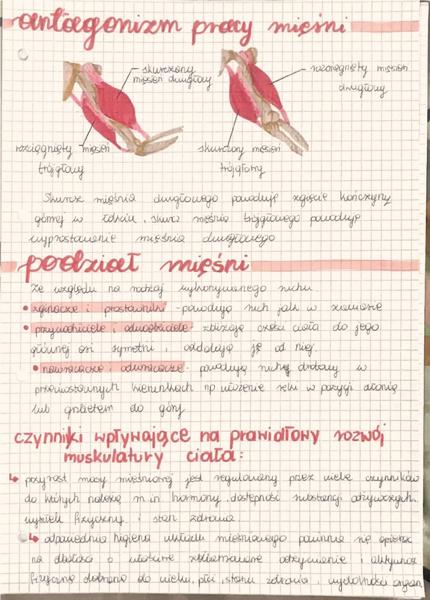 antagonizm pracy mięśni
skurczony mięsień dwugłowy
rozciągnięty mięsień dwugłowy
rozciągnięty mięsień trójgłowy
skurczony mięsień trójgłowy
Skurcz mięśnia dwugłowego powoduje zgięcie kończyny
górnej w łokciu, skurcz mięśnia trójgłowego powoduje
wyprostowanie mięśnia dwugłowego
podział mięśni
Ze względu na rodzaj wykonywanego ruchu
• zginacze i prostowniki - powodują ruch jak w zawiasie
• przywodziciele i odwodziciele - zbliżają części ciała do jego
głównej osi symetrii, oddalają je od niej
• nawracacze i odwracacze - powodują ruchy obrotowe w
przeciwstawnych kierunkach np ułożenie ręki w pozycji dłonią
lub grzbietem do góry
czynniki wpływające na prawidłowy rozwój
muskulatury ciała:
↳ przyrost masy mięśniowej jest regulowany przez wiele czynników
do których należą m.in hormony, dostępność substancji odżywczych,
wysiłek fizyczny i stan zdrowia
↳ odpowiednia higiena układu mięśniowego powinna się opierać
na dbałości o właściwe zbilansowane odżywianie i aktywność
fizyczną dobraną do wieku, płci, stanu zdrowia i wydolności organ